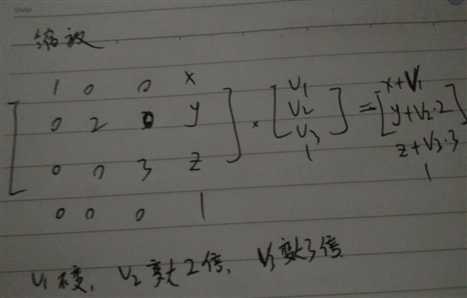 缩放
1 0 0 x
0 2 0 y
0 0 3 z
0 0 0 1
·
V1
V2
V3
1
=
x+V1
y+V2·2
z+V3·3
1
V1不变, V2变大2倍, V3变大3倍